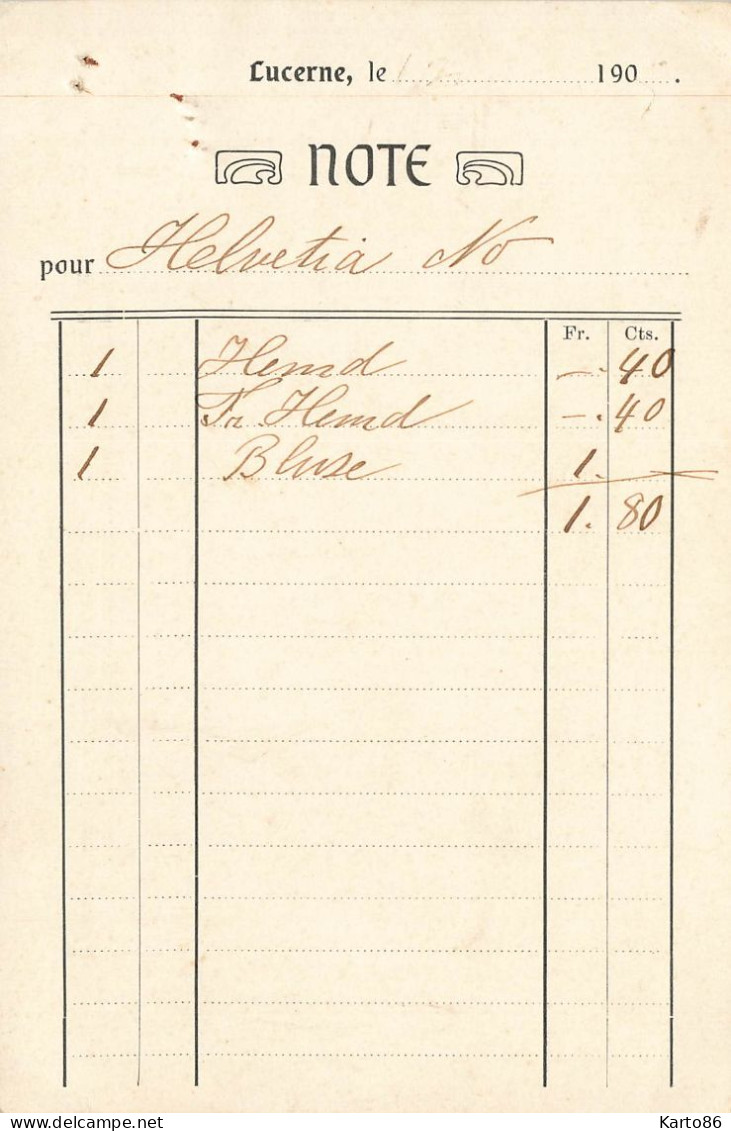 Lucerne, le 190 .
NOTE
pour Helvetia No
Fr. Cts.
1 Hemd —. 40
1 Fr. Hemd —. 40
1 Bluse 1.
1. 80
delcampe.net
Karto86